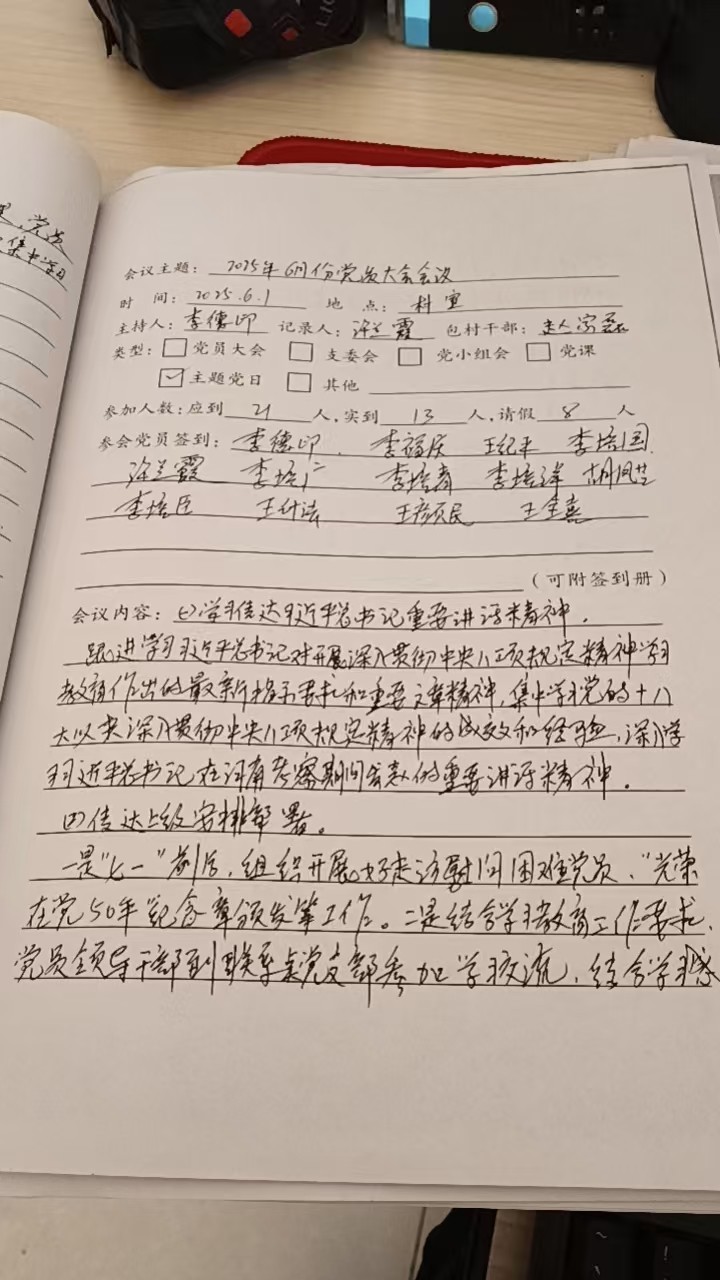 党员
集中学习
会议主题: 2025年6月份党员大会会议
时 间: 2025.6.1 地 点: 科室
主持人: 李德印 记录人: 许兰霞 包村干部:
类型: 党员大会 支委会 党小组会 党课
主题党日 其他
参加人数: 应到 21 人, 实到 13 人, 请假 8 人
参会党员签到: 李德印. 李福庆 王纪平 李培国
许兰霞 李培广 李培春 李培祥 胡凤芝
李培臣 王什法 王彦民 王全喜
(可附签到册)
会议内容: (一)学习传达习近平总书记重要讲话精神.
跟进学习习近平总书记对开展深入贯彻中央八项规定精神学习
教育作出的最新指示要求和重要文章精神, 集中学习党的十八
大以来深入贯彻中央八项规定精神的成效和经验, 深入学
习近平总书记在河南考察期间发表的重要讲话精神.
(四)传达上级安排部署。
一是"七一"前后, 组织开展好走访慰问困难党员、"光荣
在党50年"纪念章颁发等工作。二是结合学习教育工作要求,
党员领导干部到联系点党支部参加学习交流, 结合学习感